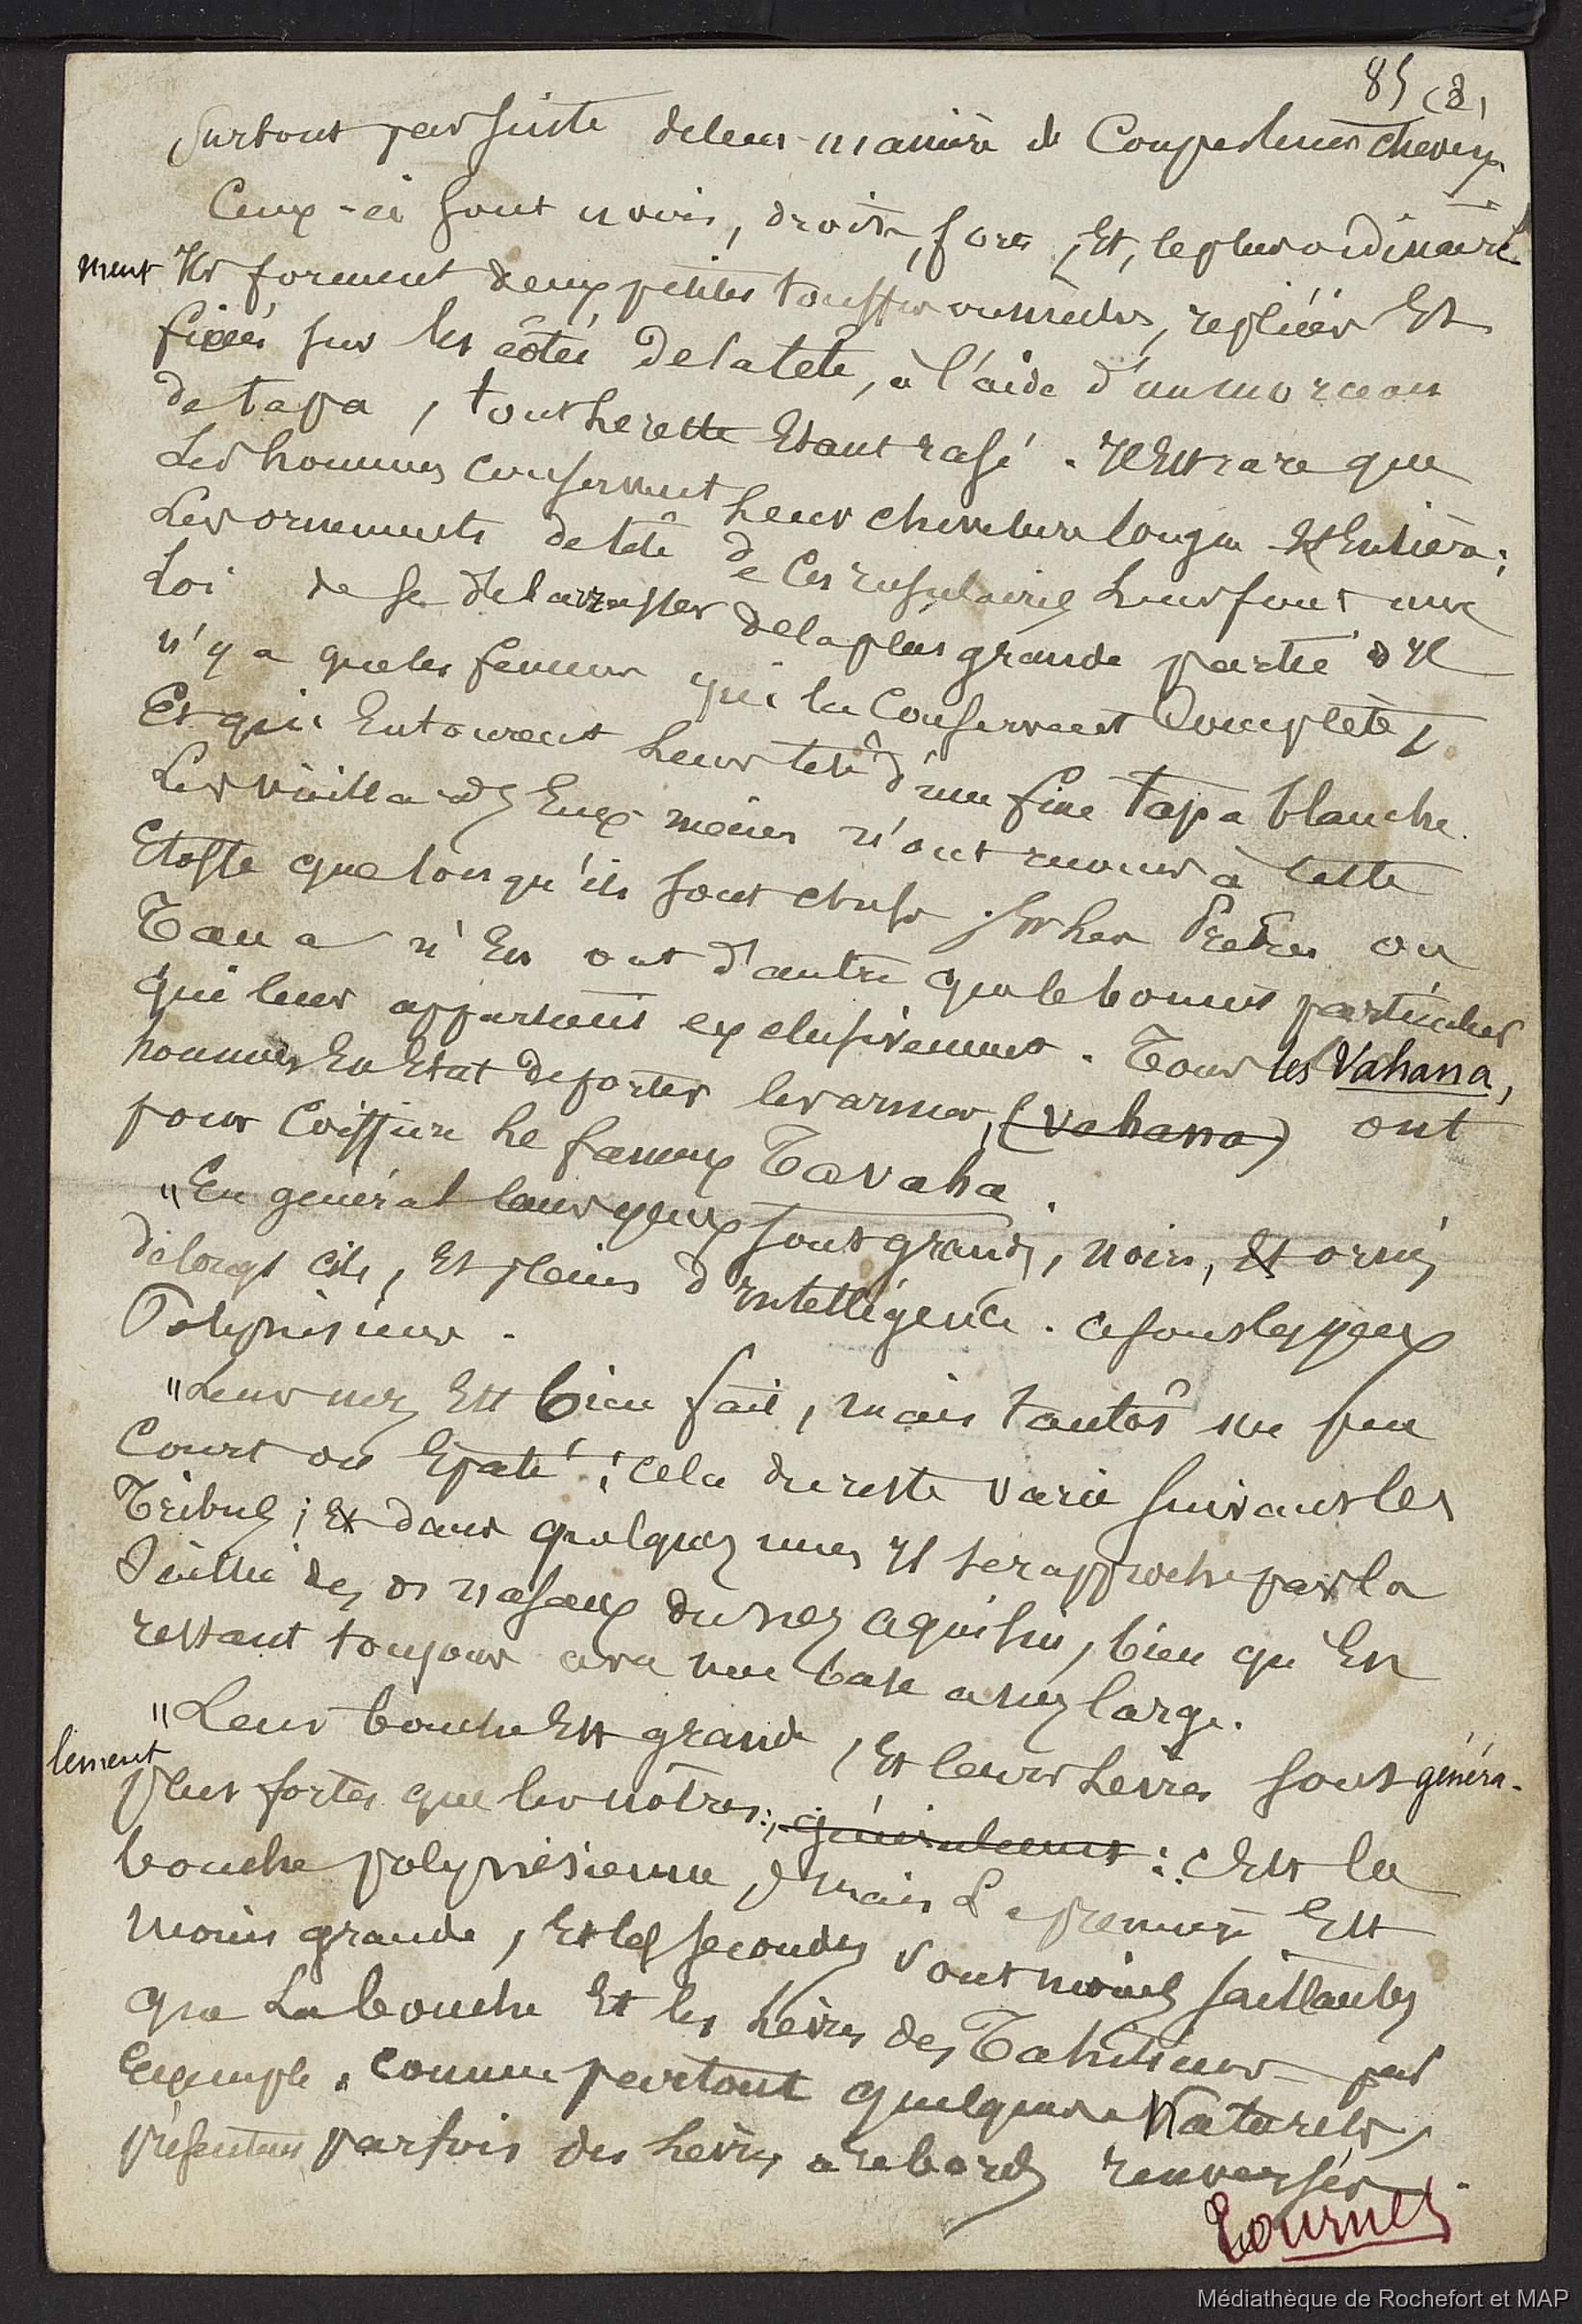 85 (8)
Surtout par suite de leur manière de Couper leurs cheveux
Ceux-ci sont noirs, droits, fors, Et, le plus ordinaire-
ment Ils forment deux petites touffes repliées Et
fixées sur les côtés de la tête, à l'aide d'un morceau
de tapa, tout le reste Etant rasé. Il Est rare que
Les hommes conservent leur chevelure longue Et Entière;
Les ornements de tête de Ces Insulaires leur font une
Loi de se débarrasser de la plus grande partie Il
n'y a que les femmes qui la Conservent Complète,
Et qui Entourent leur tête d'une fine tapa blanche.
Les vieillards Eux-mêmes n'ont recours à cette
Etoffe que lorsqu'ils sont chefs. Et les Prêtres ou
Taua n'En ont d'autre que le bonnet particulier
qui leur appartient exclusivement. Tous les Vahana,
hommes En Etat de porter les armes, (vahana) ont
pour Coiffure le fameux Tavaha.
"En général leurs yeux sont grands, noirs, Et ornés
de longs cils, Et pleins d'Intelligence. ce sont les yeux
Polynésiens.
"Leur nez Est bien fait, mais tantôt un peu
Court ou Epaté; cela du reste varie suivant les
Tribus; Et dans quelques unes Il se rapproche par la
Saillie des os nasaux du nez aquilin, bien qu'En
restant toujours avec une base assez large.
"Leur bouche Est grande, Et leurs lèvres sont généra-
lement plus fortes que les nôtres; généralement: c'Est la
bouche polynésienne, mais La première Est
moins grande, Et les secondes sont moins saillantes
que La bouche Et les lèvres des Tahitiens par
Exemple. comme partout quelques Naturels,
présentent parfois des lèvres à rebords renversés.
Tournez
Médiathèque de Rochefort et MAP